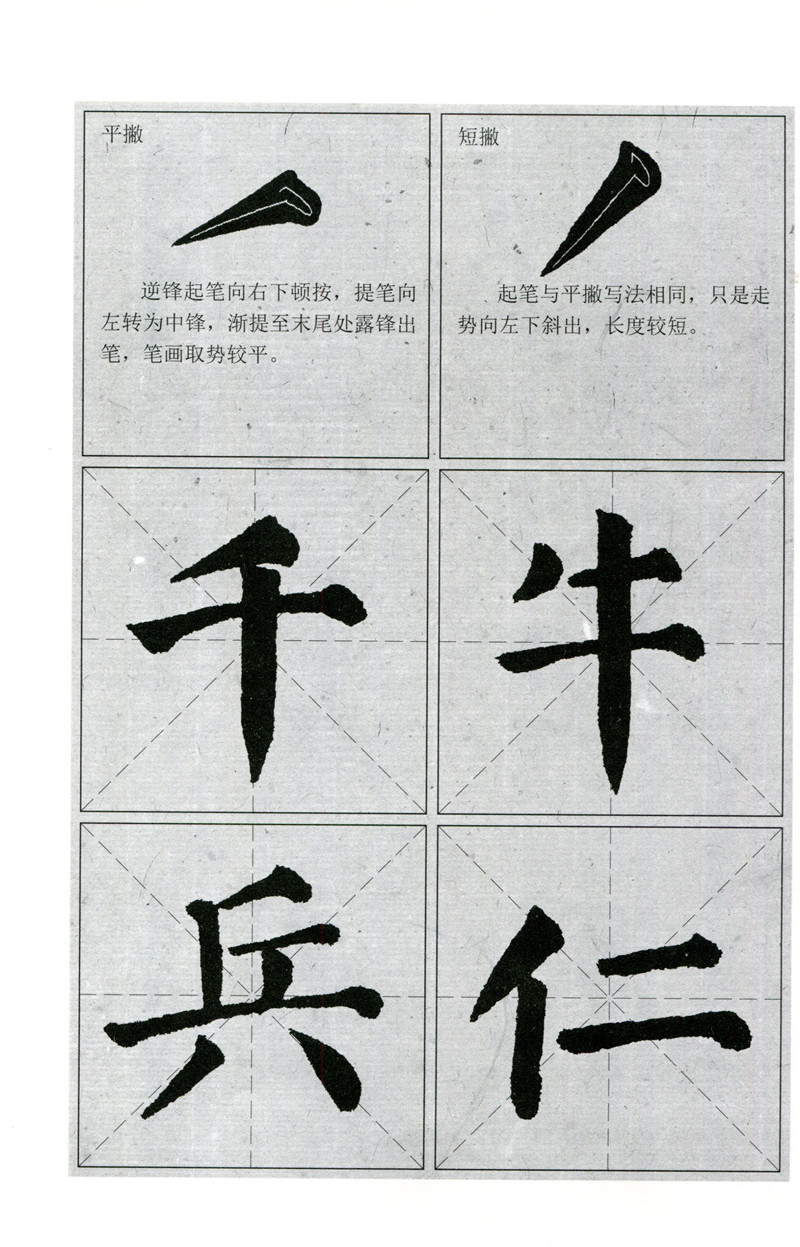 平撇
逆锋起笔向右下顿按，提笔向
左转为中锋，渐提至末尾处露锋出
笔，笔画取势较平。
短撇
起笔与平撇写法相同，只是走
势向左下斜出，长度较短。
千
牛
兵
仁